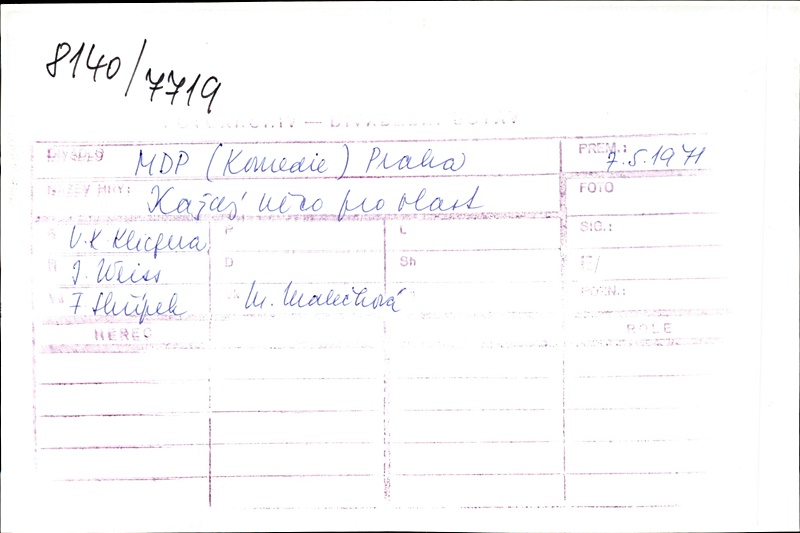 8140/7719
DIVADLO MDP (Komedie) Praha PREM.: 7.5.1971
NÁZEV HRY: Každý něco pro vlast FOTO
A V.K. Klicpera P L SIG.:
R J. Weiss D Sh
F Skřípek M. Malečková POZN.:
HEREC ROLE